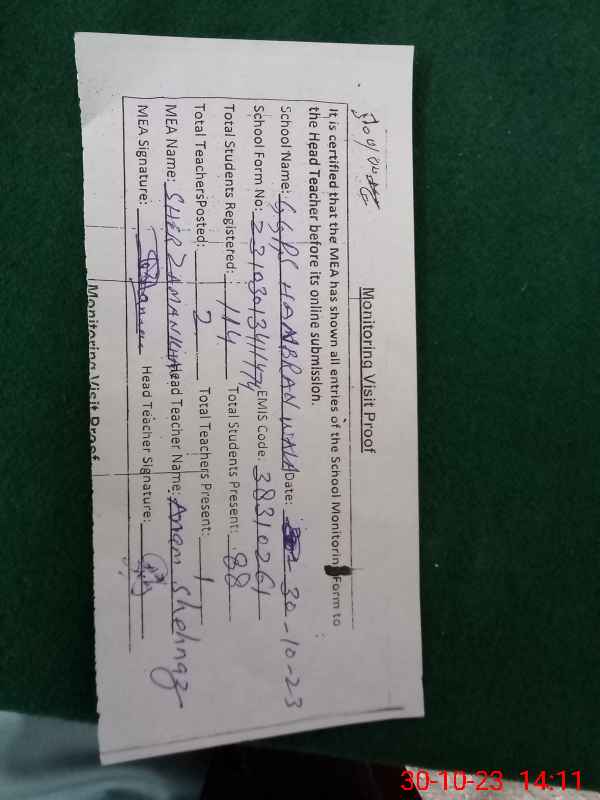 Monitoring Visit Proof
It is certified that the MEA has shown all entries of the School Monitorin Form to
the Head Teacher before its online submission.
School Name: GGPS HAMBRAN WALA Date: 30-10-23
School Form No: 2310301341474 EMIS Code: 38310261
Total Students Registered: 114 Total Students Present: 88
Total TeachersPosted: 2 Total Teachers Present: 1
MEA Name: SHER ZAMAN KHAN Head Teacher Name: Anam Shehnaz
MEA Signature: Head Teacher Signature:
Monitoring Visit Proof
30-10-23 14:11